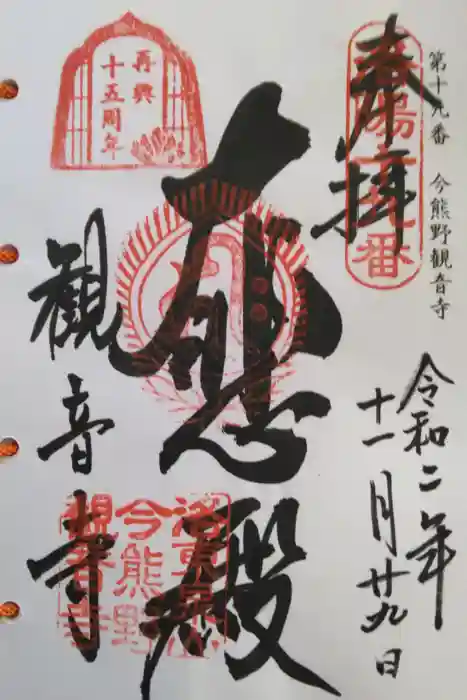 第十九番 今熊野観音寺
奉拝
洛陽十九番
令和二年
十一月廿九日
大悲殿
観音寺
再興
十五周年
洛東
今熊野
観音寺